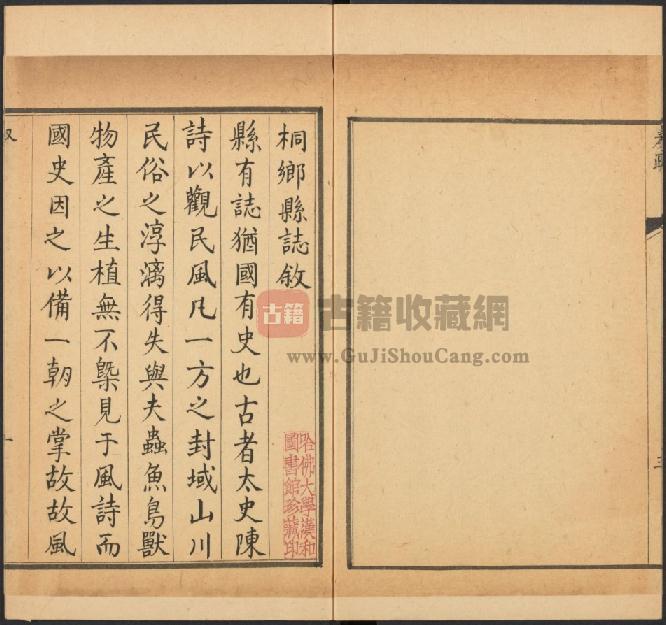 桐鄉縣誌敘
縣有誌猶國有史也古者太史陳
詩以觀民風凡一方之封域山川
民俗之淳漓得失與夫蟲魚鳥獸
物產之生植無不槩見于風詩而
國史因之以備一朝之掌故故風
哈佛大學漢和
圖書館珍藏印
古籍
古籍收藏網
www.GuJiShouCang.com